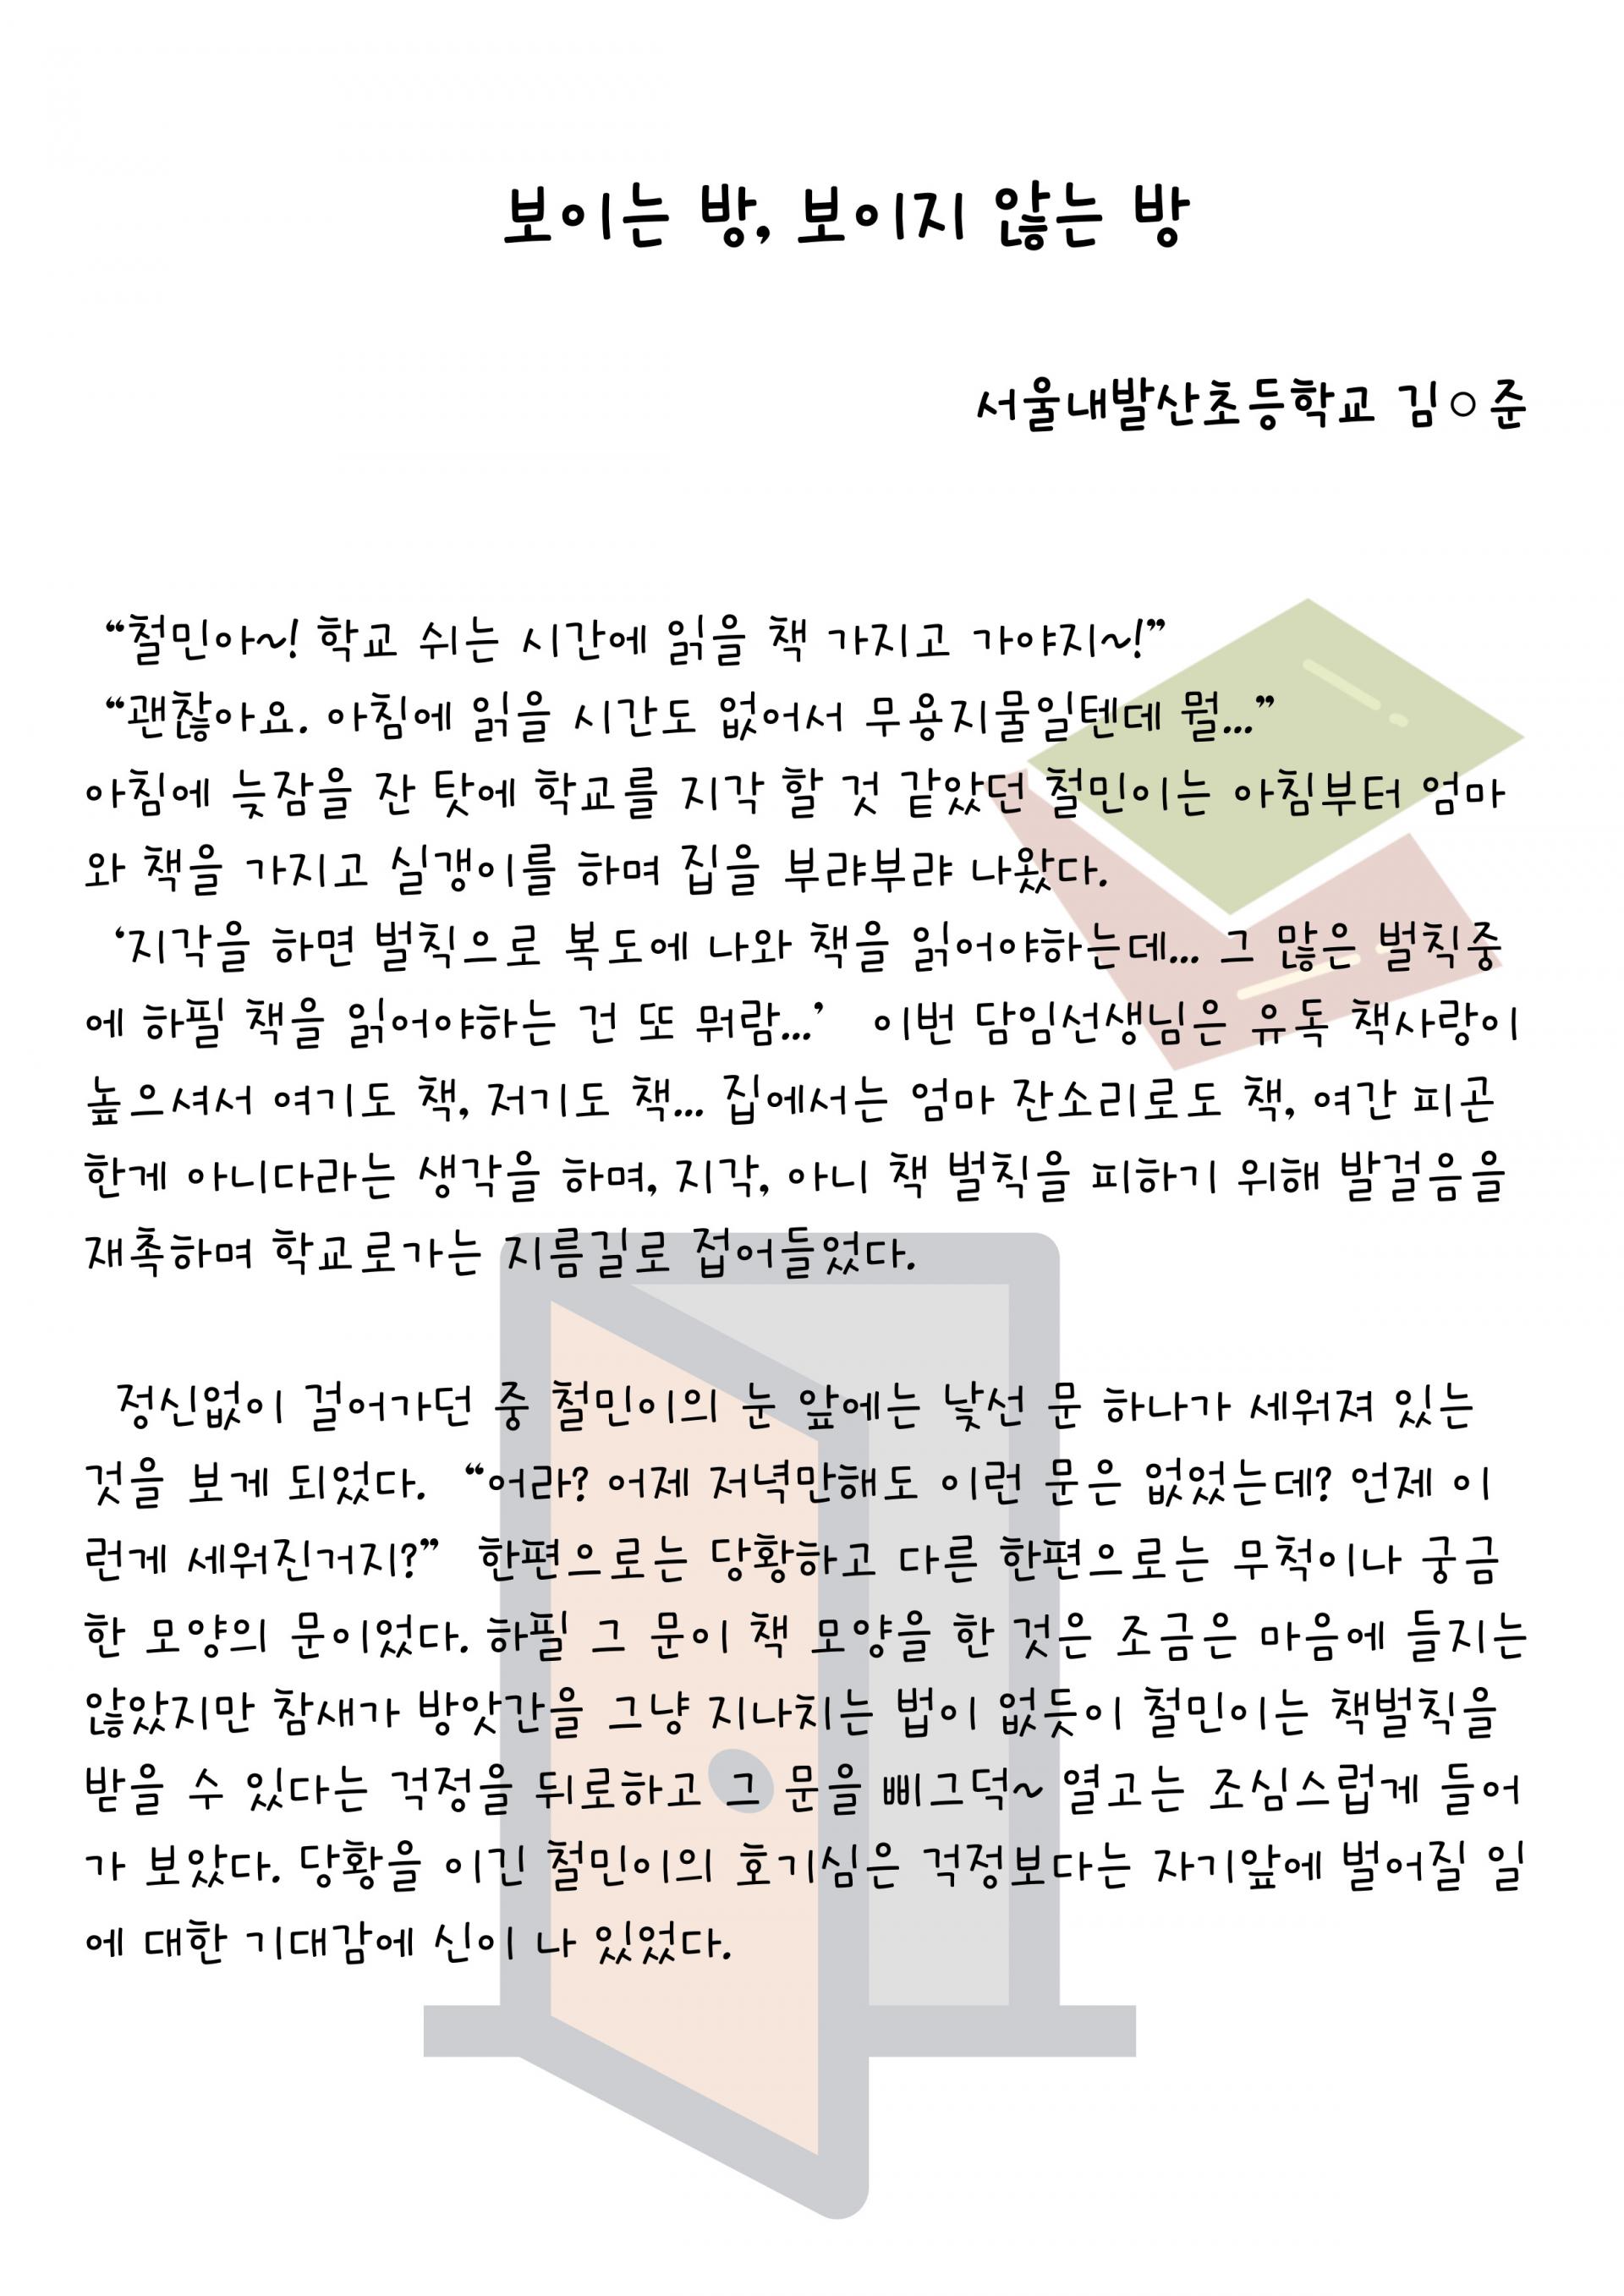 보이는 방, 보이지 않는 방
서울내발산초등학교 김○준
“철민아~! 학교 쉬는 시간에 읽을 책 가지고 가야지~!”
“괜찮아요. 아침에 읽을 시간도 없어서 무용지물일텐데 뭘...”
아침에 늦잠을 잔 탓에 학교를 지각 할 것 같았던 철민이는 아침부터 엄마
와 책을 가지고 실갱이를 하며 집을 부랴부랴 나왔다.
‘지각을 하면 벌칙으로 복도에 나와 책을 읽어야하는데... 그 많은 벌칙중
에 하필 책을 읽어야하는 건 또 뭐람...’ 이번 담임선생님은 유독 책사랑이
높으셔서 여기도 책, 저기도 책... 집에서는 엄마 잔소리로도 책, 여간 피곤
한게 아니다라는 생각을 하며, 지각, 아니 책 벌칙을 피하기 위해 발걸음을
재촉하며 학교로가는 지름길로 접어들었다.
정신없이 걸어가던 중 철민이의 눈 앞에는 낯선 문 하나가 세워져 있는
것을 보게 되었다. “어라? 어제 저녁만해도 이런 문은 없었는데? 언제 이
런게 세워진거지?” 한편으로는 당황하고 다른 한편으로는 무척이나 궁금
한 모양의 문이었다. 하필 그 문이 책 모양을 한 것은 조금은 마음에 들지는
않았지만 참새가 방앗간을 그냥 지나치는 법이 없듯이 철민이는 책벌칙을
받을 수 있다는 걱정을 뒤로하고 그 문을 삐그덕~ 열고는 조심스럽게 들어
가 보았다. 당황을 이긴 철민이의 호기심은 걱정보다는 자기앞에 벌어질 일
에 대한 기대감에 신이 나 있었다.